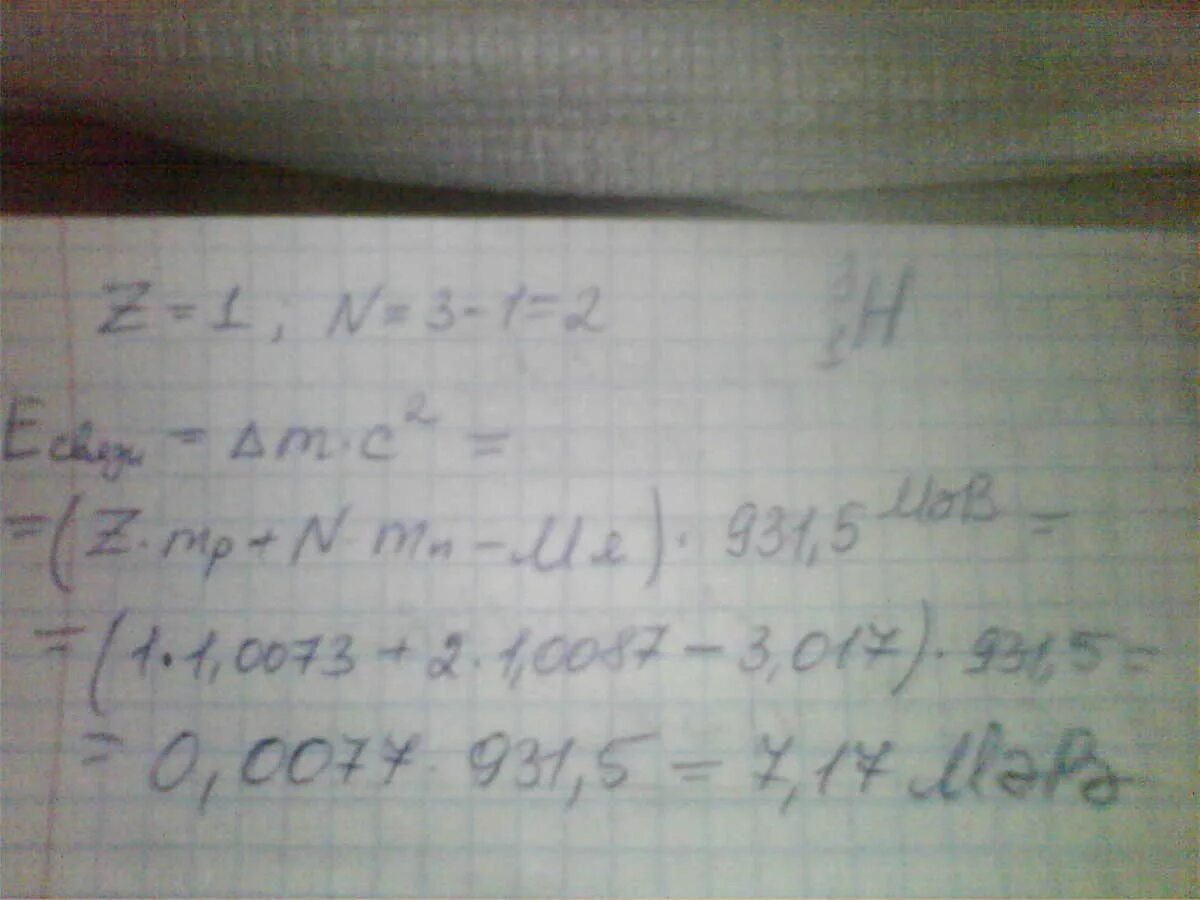 Z = 1 ; N = 3 - 1 = 2 ³₁H
Eсвязи = Δm · c² =
= (Z · mp + N · mn - Mя) · 931,5 МэВ =
= (1 · 1,0073 + 2 · 1,0087 - 3,017) · 931,5 =
= 0,0077 · 931,5 = 7,17 МэВ